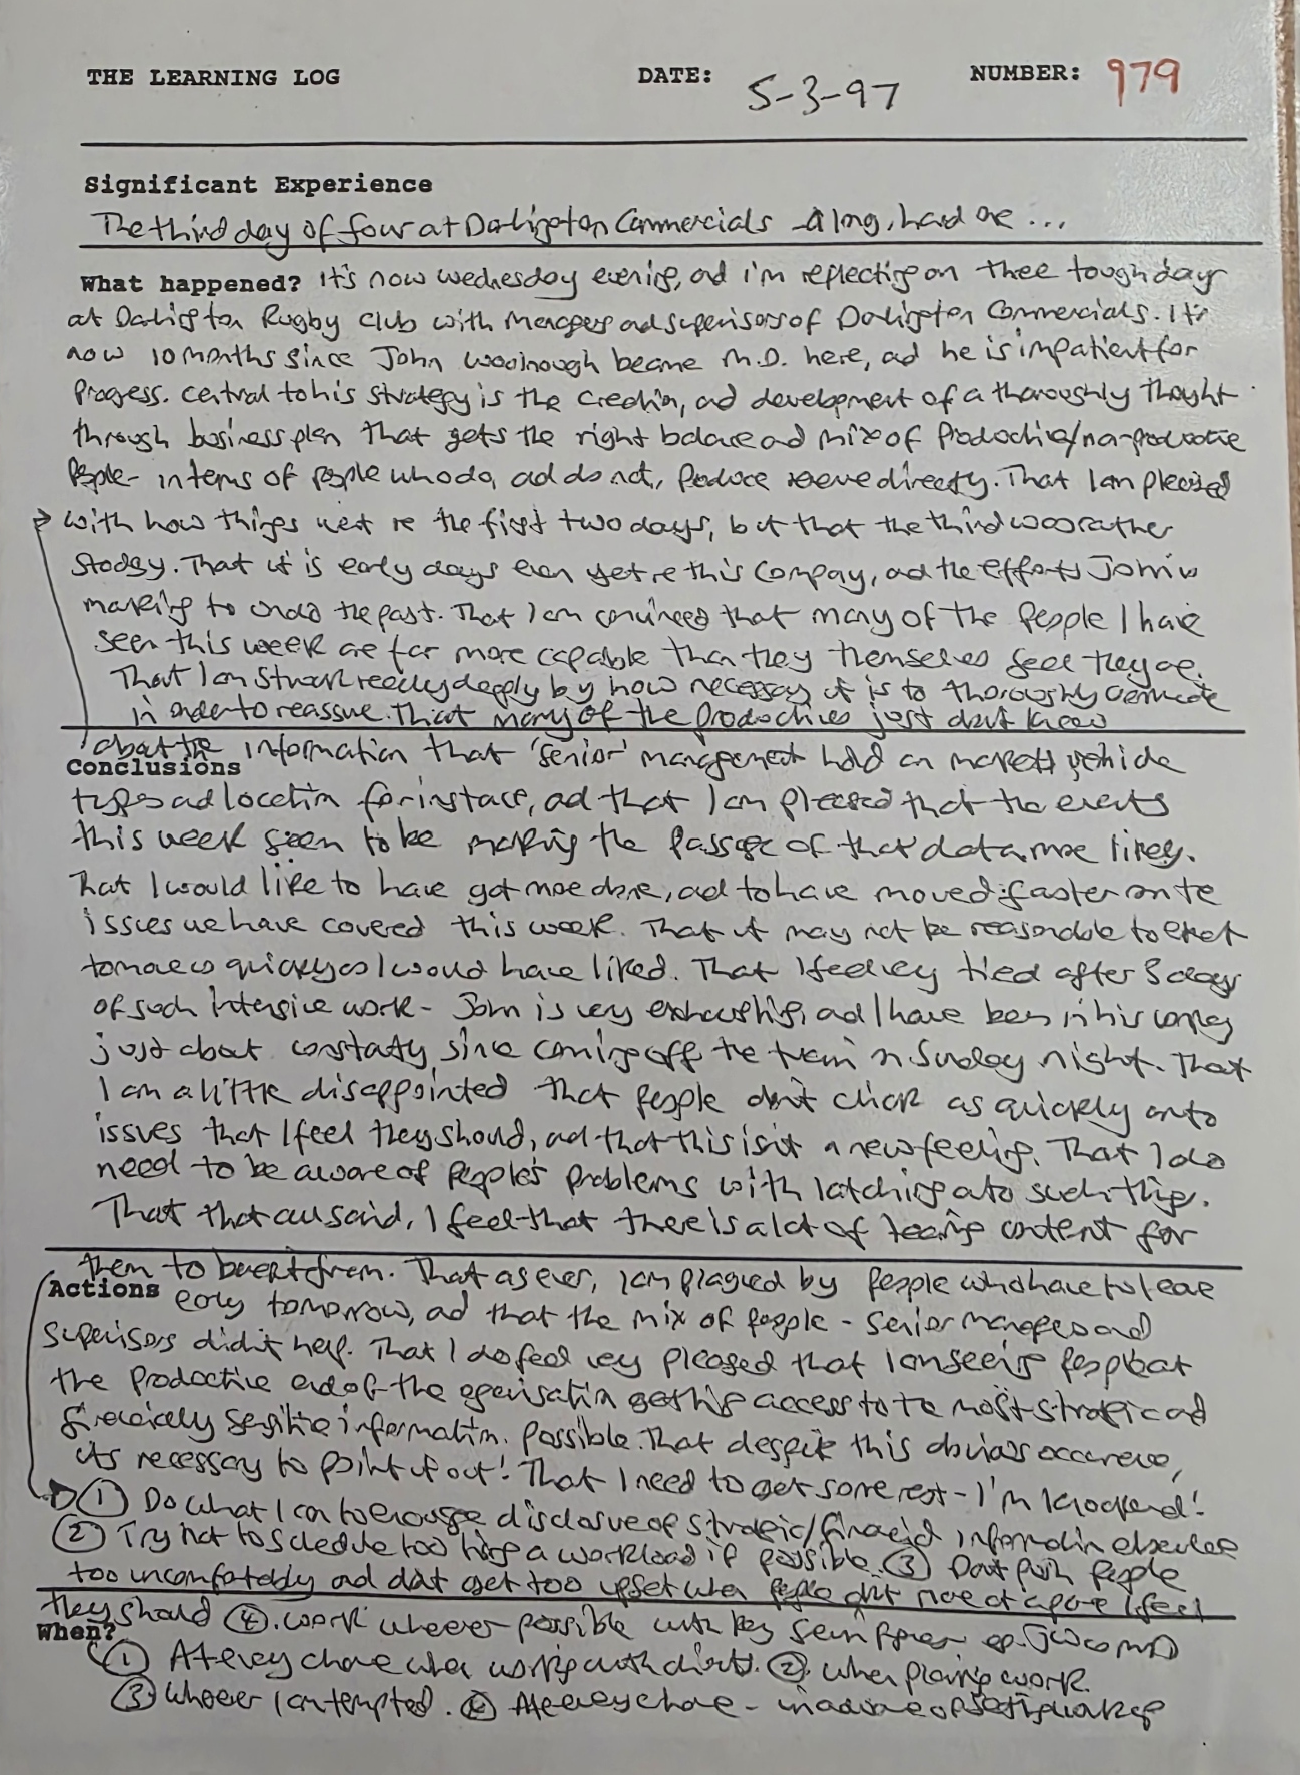 THE LEARNING LOG DATE: 5-3-97 NUMBER: 979
Significant Experience
The third day of four at Darlington Commercials - a long, hard one ...
What happened? It's now wednesday evening, and I'm reflecting on three tough days
at Darlington Rugby Club with Managers and supervisors of Darlington Commercials. It's
now 10 months since John Woolnough became M.D. here, and he is impatient for
Progress. Central to his strategy is the creation, and development of a thoroughly thought
through business plan that gets the right balance and mix of Productive/non-productive
People - in terms of people who do, and do not, Produce revenue directly. That I am pleased
with how things went re the first two days, but that the third was rather
stodgy. That it is early days even yet re this Company, and the efforts John is
making to undo the past. That I am convinced that many of the people I have
seen this week are far more capable than they themselves feel they are.
That I am struck really deeply by how necessary it is to thoroughly
in order to reassure. That many of the Productives just don't know
about the information that 'senior' management hold on markets vehicle
Conclusions
types and location for instance, and that I am pleased that the events
this week seem to be making the passage of that data more likely.
That I would like to have got more done, and to have moved faster on the
issues we have covered this week. That it may not be reasonable to expect
to move as quickly as I would have liked. That I feel very tired after 3 days
of such intensive work - John is very exhausting, and I have been in his company
just about constantly since coming off the train on Sunday night. That
I am a little disappointed that people don't click as quickly onto
issues that I feel they should, and that this isn't a new feeling. That I do
need to be aware of people's problems with latching onto such things.
That that all said, I feel that there is a lot of learning content for
them to benefit from. That as ever, I am plagued by people who have to leave
Actions early tomorrow, and that the mix of people - senior managers and
supervisors didn't help. That I do feel very pleased that I am seeing people at
the Productive end of the organisation getting access to the most strategic and
financially sensitive information. Possible. That despite this obvious occurrence,
it's necessary to point it out! That I need to get some rest - I'm knackered!
① Do what I can to encourage disclosure of strategic/financial information elsewhere
② Try not to schedule too heavy a workload if possible. ③ Don't push people
too uncomfortably and don't get too upset when people don't move at a pace I feel
they should ④. Work wherever possible with key senior eg. JW as MD
When?
① At every chance when working with clients. ②. When planning work.
③ Whenever I am tempted. ④ At every chance - in advance of